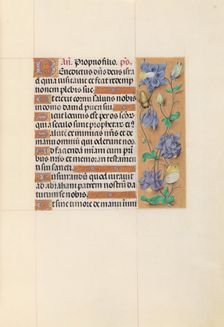 An. Pro pno filio. ps.
Enedictus dns deus isra
el quia uisitauit et fecit redemp
nonem plebis sue
t erexit cornu salutis nobis
in domo dauid pueri sui
icut locutus est per os
a seculo sunt prophetar
alute ex inimicis nris et de
manu omnium qui oderunt nos
d faciendā miam cum pri
bus nris et memorari testamen
ti sui sancti
us iurandū quod iurauit
ad abraham patrem nostrū da
turum se nobis
t sine timore de manu inimi